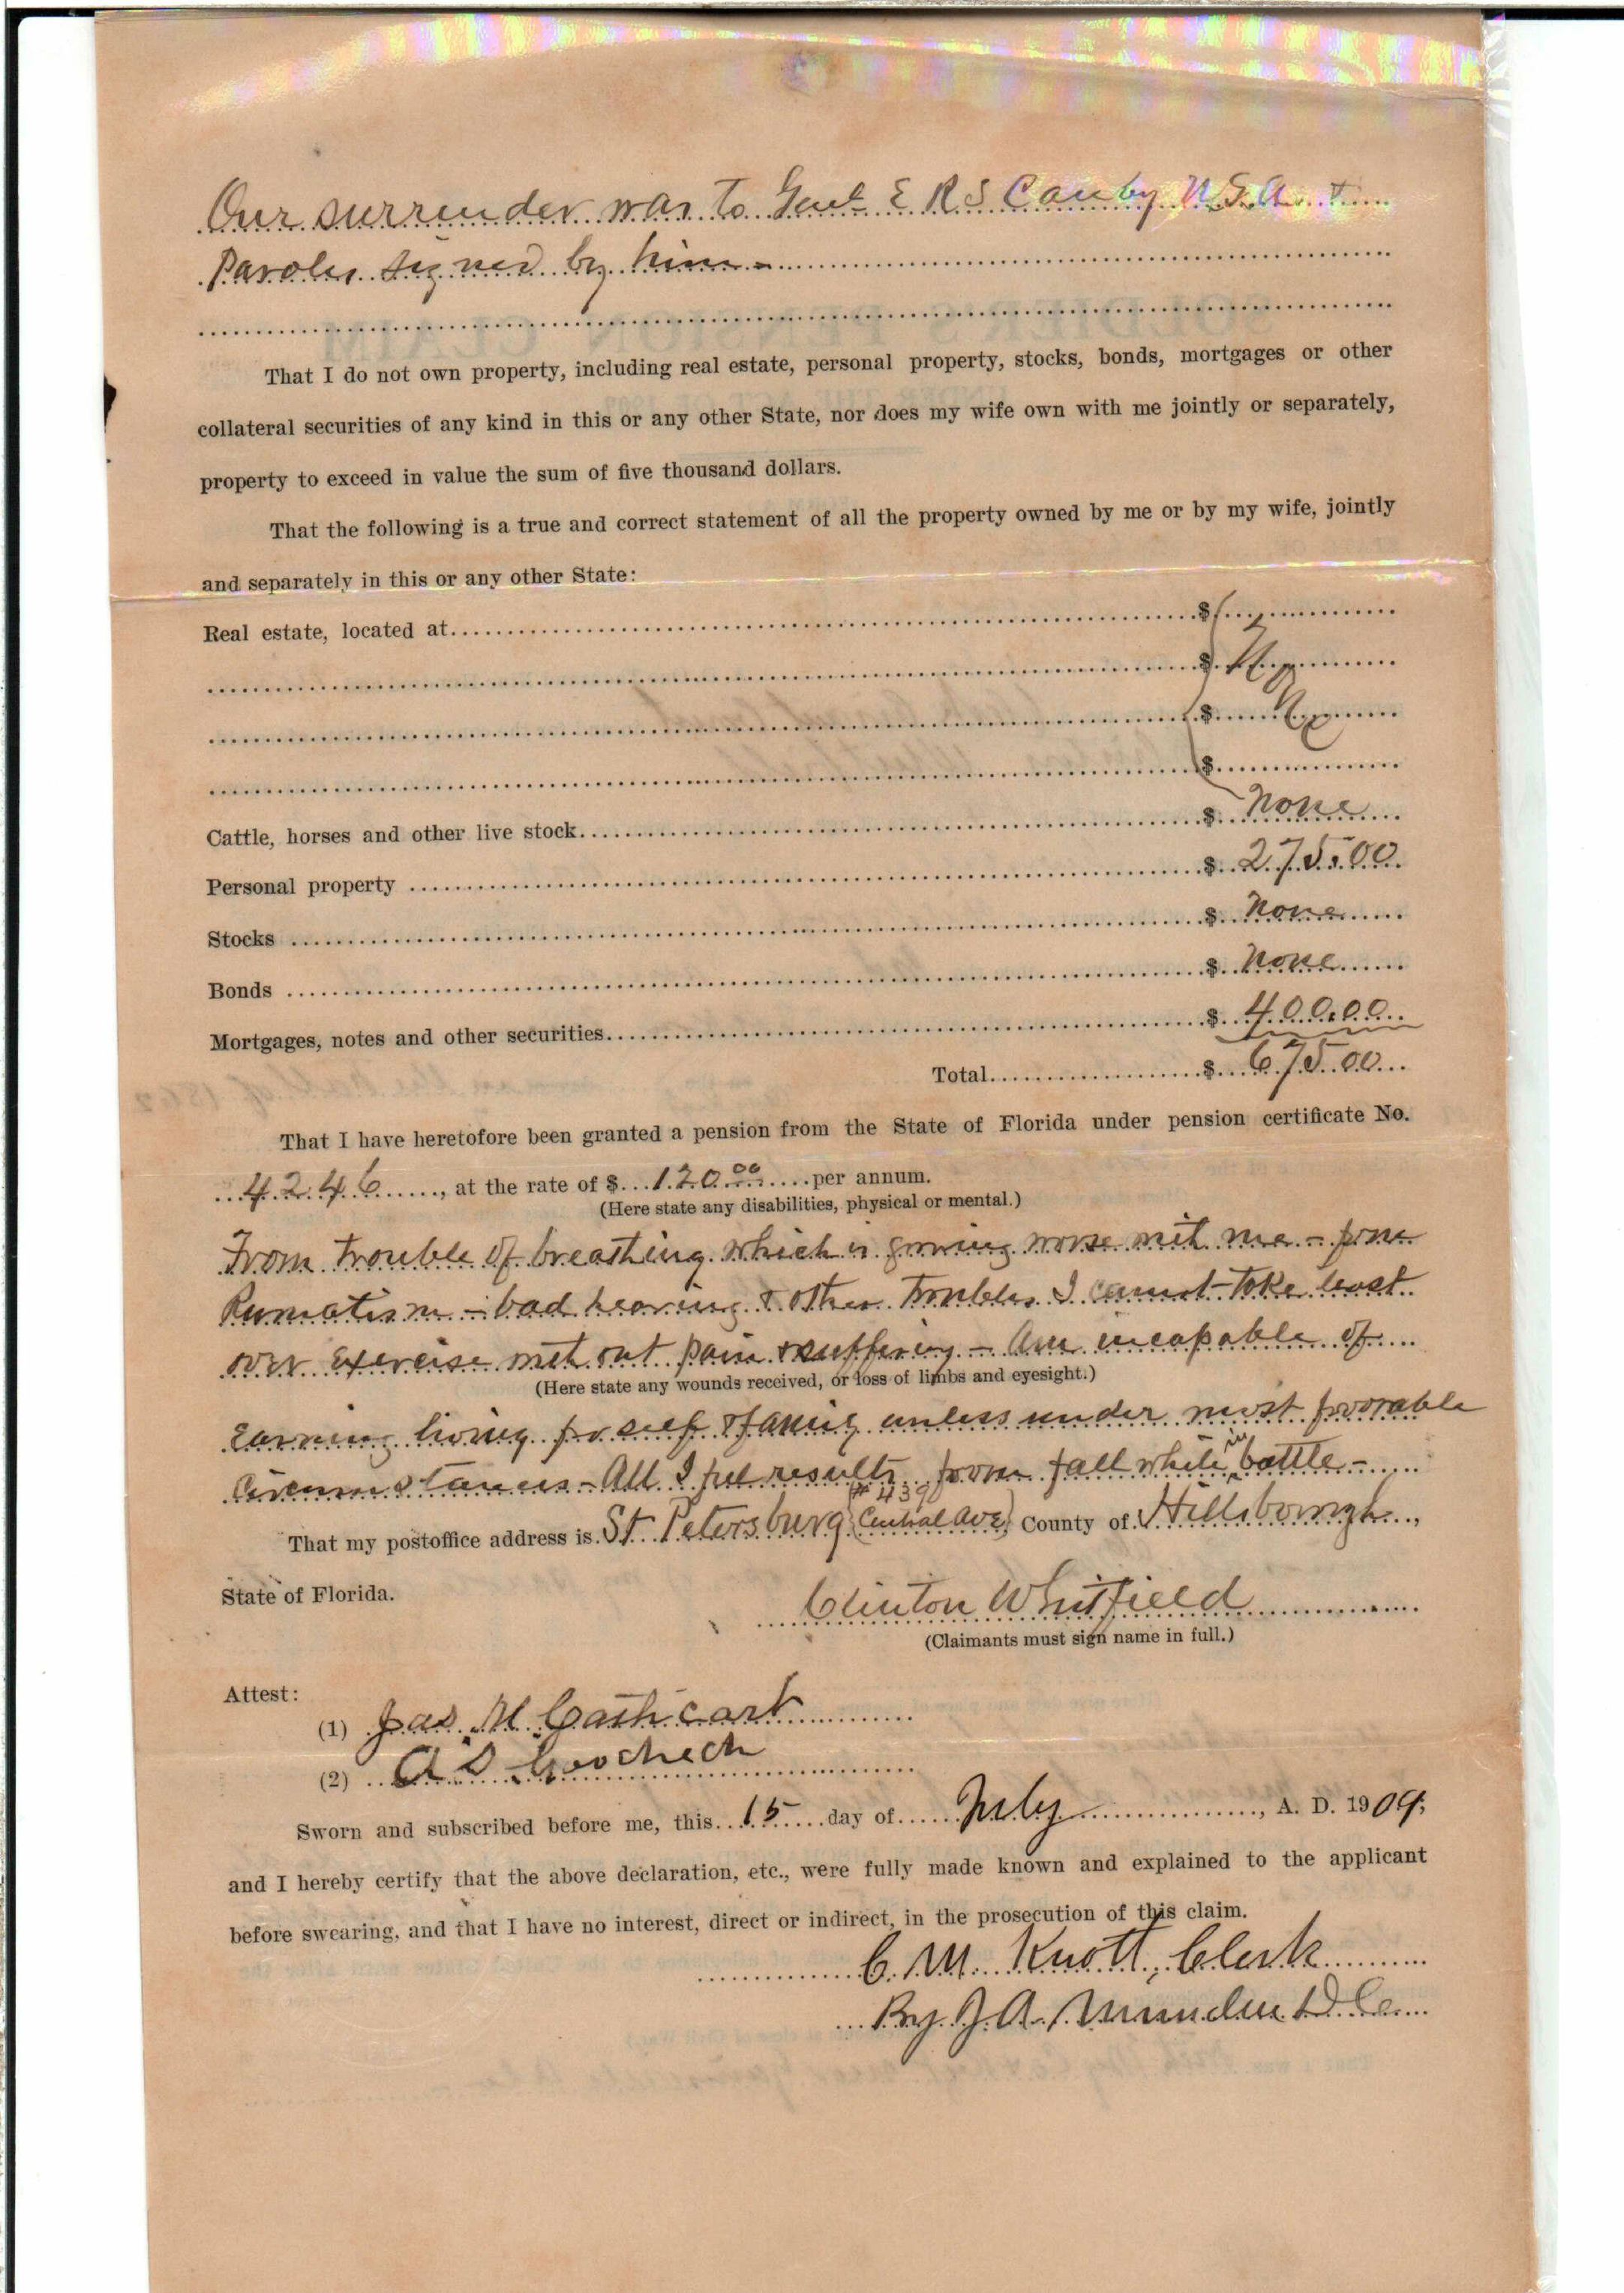 Our surrender was to Genl E R S Canby U.S.A. &
Paroles signed by him -
That I do not own property, including real estate, personal property, stocks, bonds, mortgages or other
collateral securities of any kind in this or any other State, nor does my wife own with me jointly or separately,
property to exceed in value the sum of five thousand dollars.
That the following is a true and correct statement of all the property owned by me or by my wife, jointly
and separately in this or any other State:
Real estate, located at $
$
$
$
Cattle, horses and other live stock $ None
Personal property $ 275.00
Stocks $ None
Bonds $ None
Mortgages, notes and other securities $ 400.00
Total $ 675.00
That I have heretofore been granted a pension from the State of Florida under pension certificate No.
4246, at the rate of $ 120.00 per annum.
(Here state any disabilities, physical or mental.)
From trouble of breathing which is growing worse with me -
Rumatism - bad hearing & other troubles I cannot take least
over exercise with out pain & suffering - Am incapable of
(Here state any wounds received, or loss of limbs and eyesight.)
Earning living for self & family unless under most favorable
Circumstances - All I feel results from fall while in battle -
# 439
That my postoffice address is St Petersburg (Central Ave) County of Hillsborough,
State of Florida.
Clinton Whitfield
(Claimants must sign name in full.)
Attest:
(1) Jas. M Cathcart
(2) A S
Sworn and subscribed before me, this 15 day of July, A. D. 1909,
and I hereby certify that the above declaration, etc., were fully made known and explained to the applicant
before swearing, and that I have no interest, direct or indirect, in the prosecution of this claim.
C. M. Knott, Clerk
By J. A. D.C.